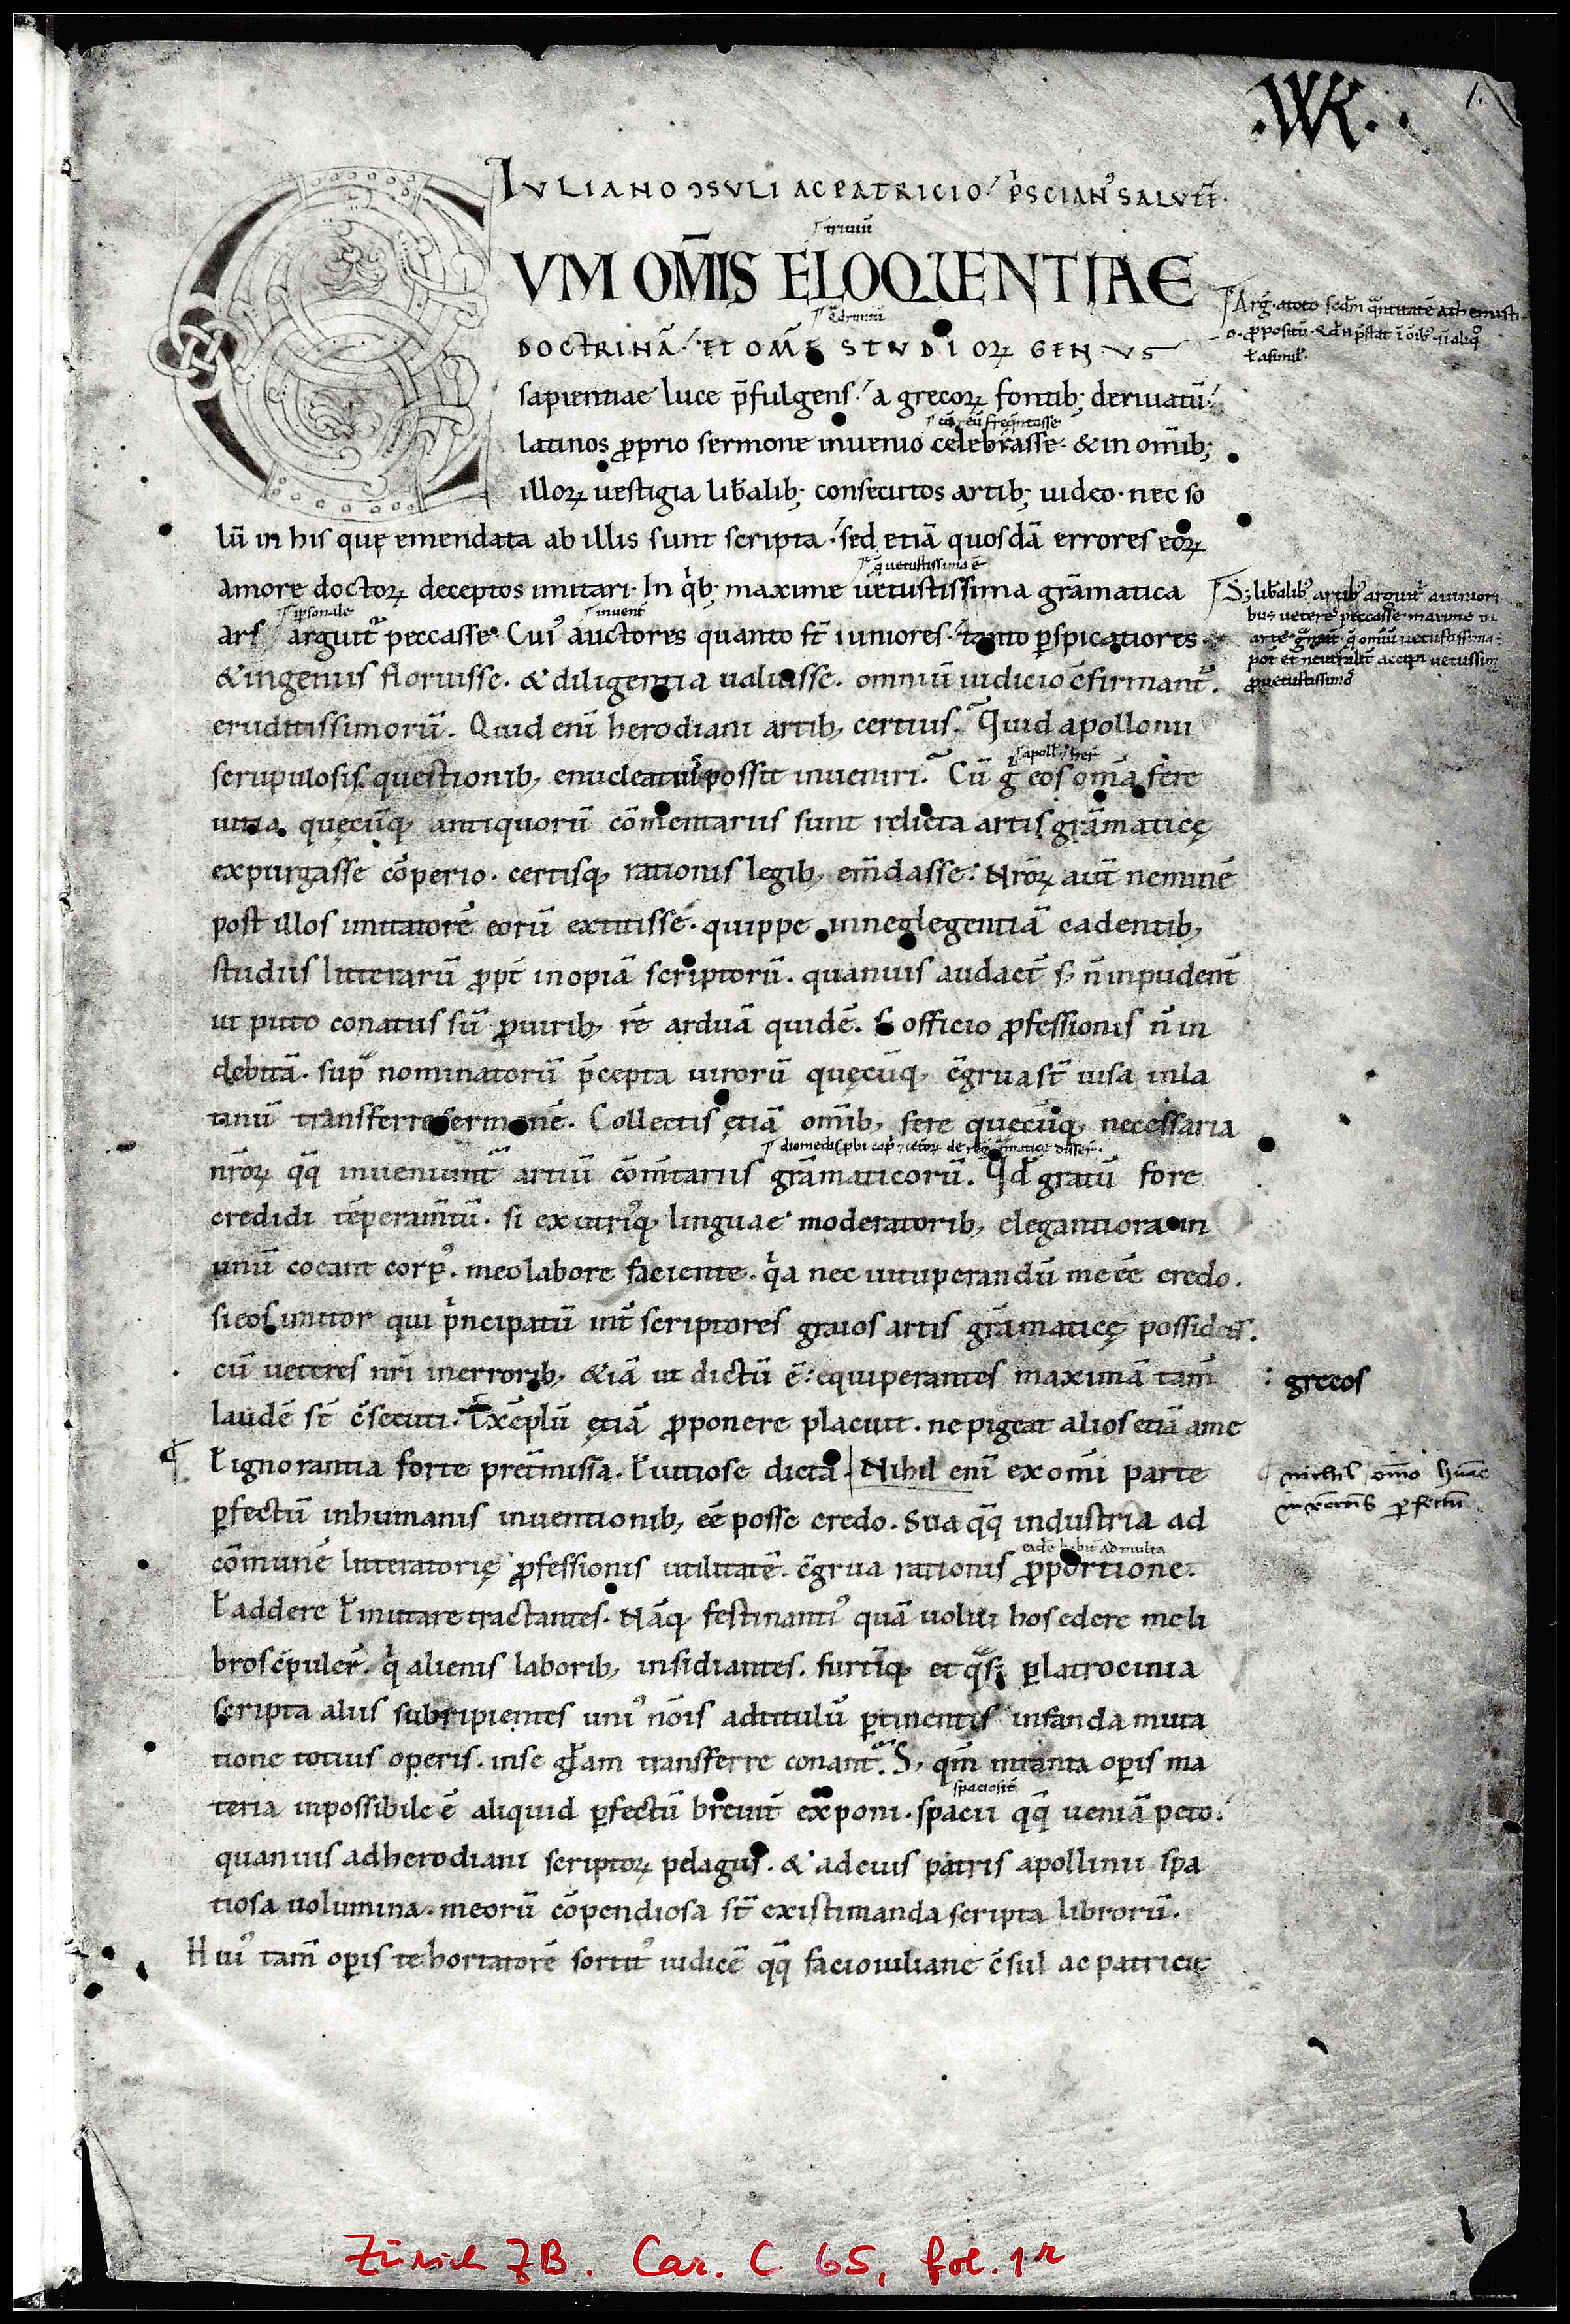 .WK.
1.
IULIANO ꝯSULI AC PATRICIO / PͥSCIANꝰ SALUTĒ.
triuiū
CUM OM̄IS ELOQUENTIAE
q̄driuiū
DOCTRINĀ. ET OM̄E STUDIOꝜ GENUS
sapientiae luce p̄fulgens. a grecoꝝ fontib; deriuatū.
Latinos ꝓprio sermone inuenio celebrasse. & in omīb;
illoꝝ uestigia lib̄alib; consecutos artib; uideo. nec so
lū in his quę emendata ab illis sunt scripta. sed etiā quosdā errores eoꝝ
q̄ uetustissima ē
amore doctoꝝ deceptos imitari. In qͥb; maxime uetustissima grāmatica
ip̄sonale
ars arguit᷑ peccasse. Cuiꝰ auctores quanto st̄ iuniores. tanto ꝑspicatiores
& ingeniis floruisse. & diligentia ualuisse. omniū iudicio ꝯ̄firmant᷑.
eruditissimorū. Quid eni herodiani artib, certius. Quid apollonii
scrupulosis questionib, enucleatiꝰ possit inueniri. Cū g̊ eos omīa fere
uitia. quęcūq, antiquorū cōmentariis sunt relicta artis grāmaticę
expurgasse cōperio. certisq, rationis legib, em̄dasse. Nr̄oꝝ aūt neminē
post illos imitatorē eorū extitisse. quippe in neglegentiā cadentib,
studiis litterarū ꝓpt̄ inopiā scriptorū. quanuis audact̄ s; n̄ inpudent̄
ut puto conatus sū ꝓ uirib, rē arduā quidē. s; officio ꝓfessionis n̄ in
debitā. supͣ nominatorū p̄cepta uirorū quęcūq, ꝯ̄grua st̄ uisa in la
tinū transferre sermonē. Collectis etiā omīb, fere quecūq, necessaria
nr̄oꝝ qͦq̨ inueniunt᷑ artiū cōm̄tariis grāmaticorū. Qd̄ gratū fore
credidi tēperam̄tū. si ex utriꝰq, linguae moderatorib, elegantiora in
unū coeant corpꝰ. meo labore faciente. qͥa nec uituperandū me ēē credo.
si eos imitor qui pͥncipatū int̄ scriptores graios artis grāmaticę possident.
cū ueteres nr̄i in errorib, & iā ut dictū ē: equiperantes maximā tam̄
: grecos
laudē st̄ ꝯ̄secuti. Exēplū etiā ꝓponere placuit. ne pigeat alios etiā a me
ł ignorantia forte pret̄missa. ł uitiose dicta. Nihil eni ex omī parte
nichil om̄o
ꝑfectū in humanis inuentionib, ēē posse credo. Sua qͦq̨ industria ad
ꝑfectū
cōmunē litteratorię ꝓfessionis utilitatē. ꝯ̄grua rationis ꝓportione.
ł addere ł mutare tractantes. Nāq, festinantiꝰ quā uolui hos edere me li
bros ꝯ̄puler̄. qͥ alienis laborib, insidiantes. furtīq, et qͣsi ꝑ latrocinia
scripta aliis subripientes uniꝰ nōis ad titulū ꝑtinentis infanda muta
tione totius operis. in se gl̄am transferre conant᷑. S, qm̄ in tanta oꝑis ma
teria inpossibile ē aliquid ꝑfectū breuit̄ exponi. spacii qͦq̨ ueniā peto.
quanuis ad herodiani scriptoꝝ pelagus. & ad eius patris apollinii spa
tiosa uolumina. meorū cōpendiosa st̄ existimanda scripta librorū.
Huiꝰ tam̄ oꝑis te hortatorē sortitꝰ iudicē qͦq̨ facio iuliane ꝯ̄sul ac patricie
Zürich ZB. Car. C 65, fol. 1r